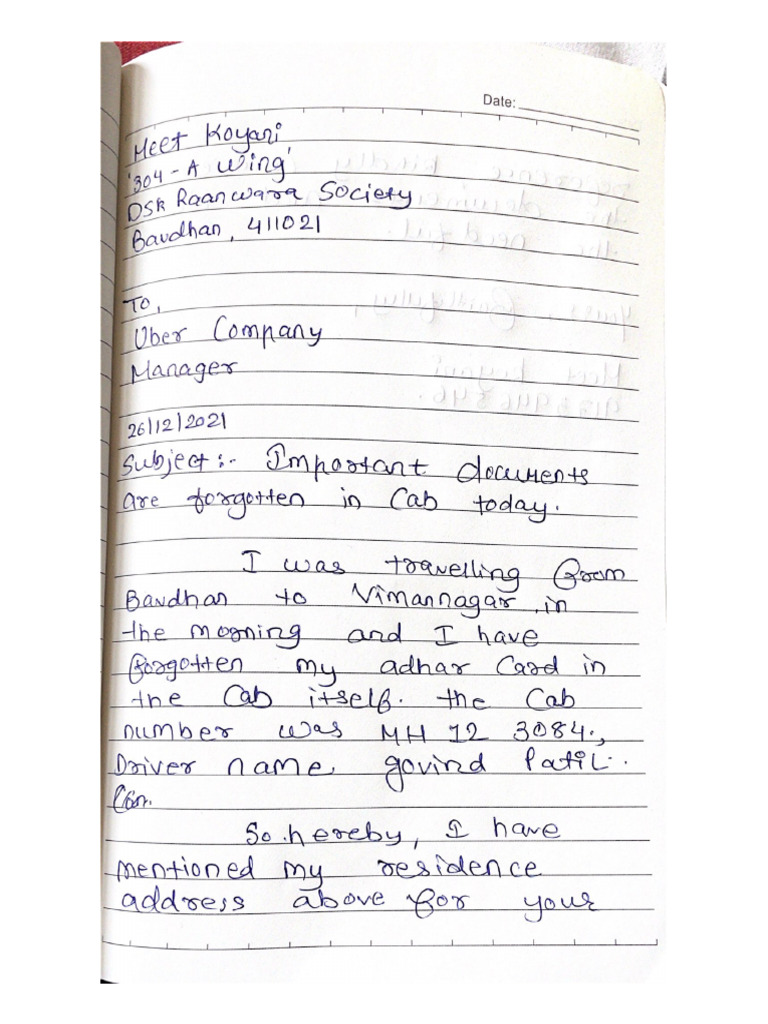 Date:
Meet Koyani
'304 - A Wing'
DSK Raanwara Society
Bavdhan, 411021
To,
Uber Company
Manager
26/12/2021
Subject:- Important documents
are forgotten in Cab today.
I was travelling from
Bavdhan to Vimannagar, in
the morning and I have
forgotten my adhar Card in
the Cab itself. the Cab
number was MH 12 3084.,
Driver name, govind Patil.
So hereby, I have
mentioned my residence
address above for your